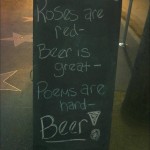 Roses are
red-
Beer is
great-
Poems are
hard-
Beer!